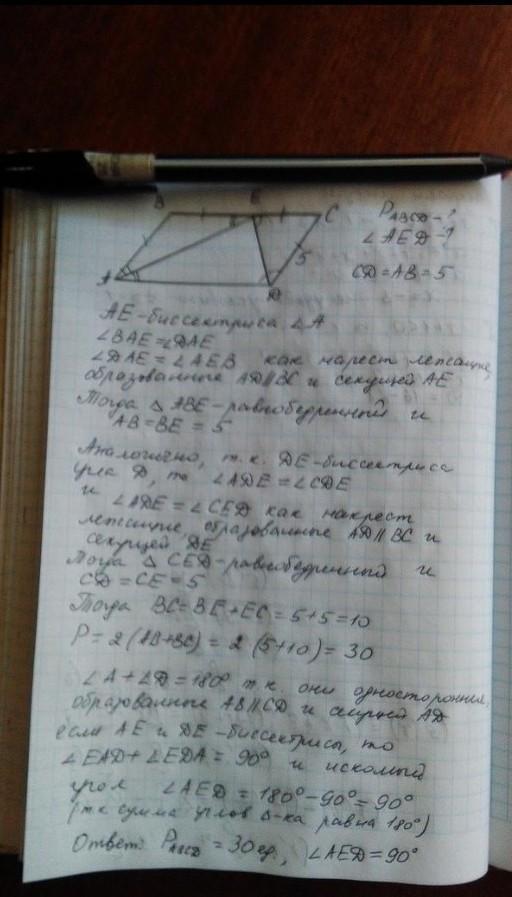 B E C
A D
5
P ABCD - ?
∠AED - ?
CD = AB = 5
AE - биссектриса ∠A
∠BAE = ∠DAE
∠DAE = ∠AEB как накрест лежащие,
образованные AD || BC и секущей AE
Тогда △ ABE - равнобедренный и
AB = BE = 5
Аналогично, т.к. DE - биссектриса
угла D, то ∠ADE = ∠CDE
и ∠ADE = ∠CED как накрест
лежащие, образованные AD || BC и
секущей DE
Тогда △ CED - равнобедренный и
CD = CE = 5
Тогда BC = BE + EC = 5 + 5 = 10
P = 2 (AB + BC) = 2 (5 + 10) = 30
∠A + ∠D = 180° т.к. они односторонние,
образованные AB || CD и секущей AD
если AE и DE - биссектрисы, то
∠EAD + ∠EDA = 90° и искомый
угол ∠AED = 180° - 90° = 90°
(т.к сумма углов △-ка равна 180°)
Ответ: P ABCD = 30 ед, ∠AED = 90°